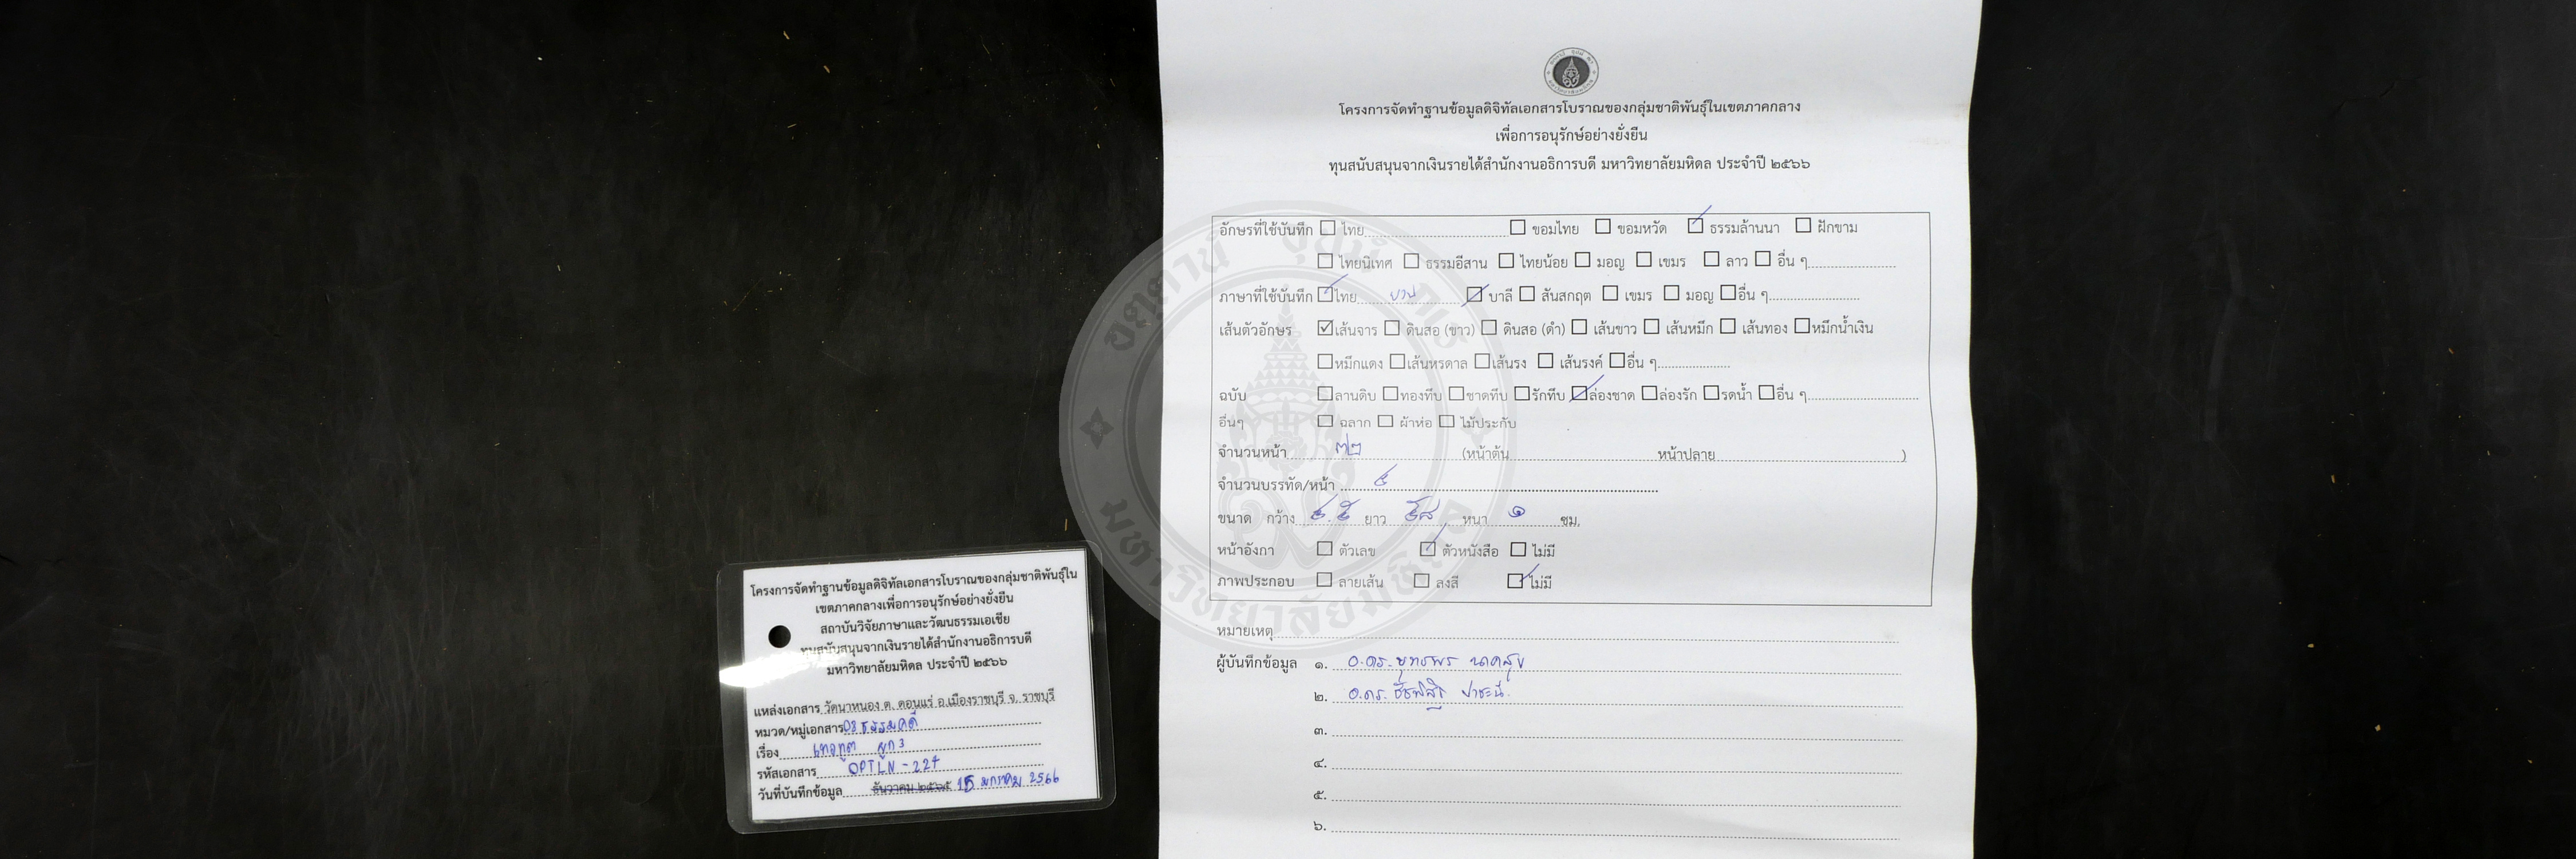 โครงการจัดทำฐานข้อมูลดิจิทัลเอกสารโบราณของกลุ่มชาติพันธุ์ในเขตภาคกลาง
เพื่อการอนุรักษ์อย่างยั่งยืน
ทุนสนับสนุนจากเงินรายได้สำนักงานอธิการบดี มหาวิทยาลัยมหิดล ประจำปี ๒๕๖๖
อักษรที่ใช้บันทึก ☐ ไทย ☐ ขอมไทย ☐ ขอมหวัด ☑ ธรรมล้านนา ☐ ฝักขาม
☐ ไทยนิเทศ ☐ ธรรมอีสาน ☐ ไทยน้อย ☐ มอญ ☐ เขมร ☐ ลาว ☐ อื่น ๆ
ภาษาที่ใช้บันทึก ☑ ไทย ☑ บาลี ☐ สันสกฤต ☐ เขมร ☐ มอญ ☐ อื่น ๆ
เส้นตัวอักษร ☑ เส้นจาร ☐ ดินสอ (ขาว) ☐ ดินสอ (ดำ) ☐ เส้นขาว ☐ เส้นหมึก ☐ เส้นทอง ☐ หมึกน้ำเงิน
☐ หมึกแดง ☐ เส้นหรดาล ☐ เส้นรง ☐ เส้นรงค์ ☐ อื่น ๆ
ฉบับ ☐ ลานดิบ ☐ ทองทึบ ☐ ชาดทึบ ☐ รักทึบ ☑ ล่องชาด ☐ ล่องรัก ☐ รดน้ำ ☐ อื่น ๆ
อื่นๆ ☐ ฉลาก ☐ ผ้าห่อ ☐ ไม้ประกับ
จำนวนหน้า ๗๒ (หน้าต้น หน้าปลาย )
จำนวนบรรทัด/หน้า ๕
ขนาด กว้าง ๕.๕ ยาว ๕๘ หนา ๑ ซม.
หน้าอังกา ☐ ตัวเลข ☑ ตัวหนังสือ ☐ ไม่มี
ภาพประกอบ ☐ ลายเส้น ☐ ลงสี ☑ ไม่มี
หมายเหตุ
ผู้บันทึกข้อมูล ๑. อ.ดร.ยุทธพร นาคสุข
๒. อ.ดร.
๓.
๔.
๕.
๖.
โครงการจัดทำฐานข้อมูลดิจิทัลเอกสารโบราณของกลุ่มชาติพันธุ์ใน
เขตภาคกลางเพื่อการอนุรักษ์อย่างยั่งยืน
สถาบันวิจัยภาษาและวัฒนธรรมเอเชีย
ทุนสนับสนุนจากเงินรายได้สำนักงานอธิการบดี
มหาวิทยาลัยมหิดล ประจำปี ๒๕๖๖
แหล่งเอกสาร วัดนาหนอง ต. ดอนแร่ อ.เมืองราชบุรี จ. ราชบุรี
หมวด/หมู่เอกสาร 03 ธรรมคดี
เรื่อง เทวทูต ผูก 3
รหัสเอกสาร OPTLN - 227
วันที่บันทึกข้อมูล ธันวาคม ๒๕๖๕ 15 มกราคม 2566
มหาวิทยาลัยมหิดล